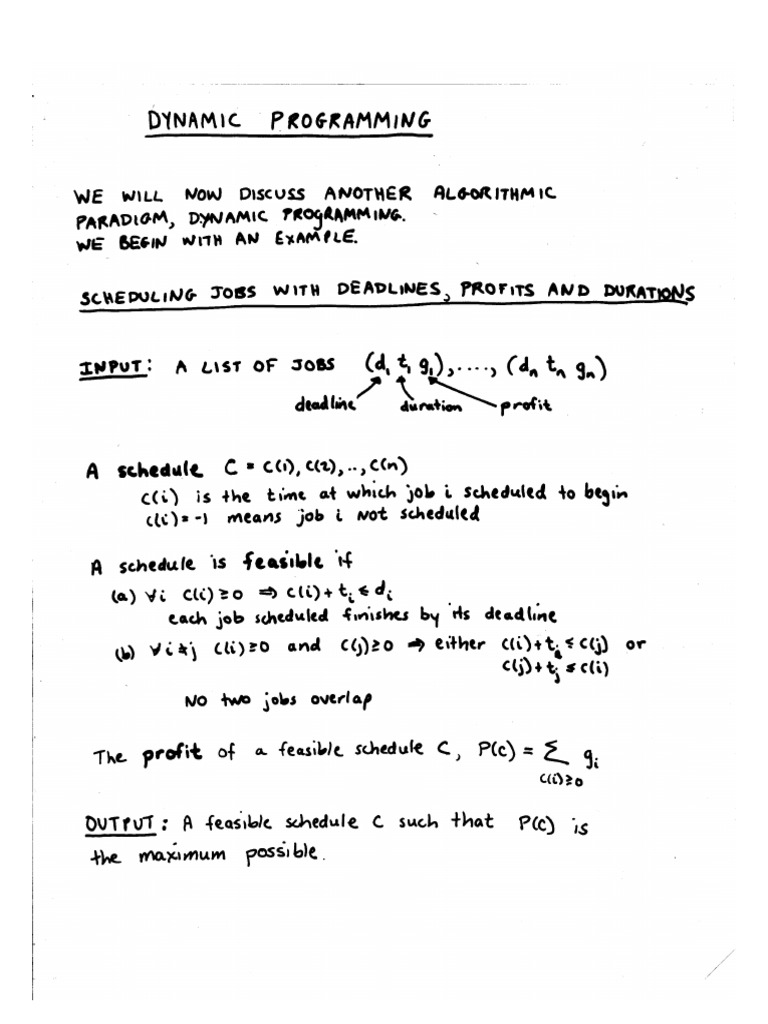 DYNAMIC PROGRAMMING
WE WILL NOW DISCUSS ANOTHER ALGORITHMIC
PARADIGM, DYNAMIC PROGRAMMING.
WE BEGIN WITH AN EXAMPLE.
SCHEDULING JOBS WITH DEADLINES, PROFITS AND DURATIONS
INPUT: A LIST OF JOBS (d₁ t₁ g₁), ...., (dₙ tₙ gₙ)
deadline duration profit
A schedule C = C(1), C(2), .., C(n)
C(i) is the time at which job i scheduled to begin
C(i) = -1 means job i not scheduled
A schedule is feasible if
(a) ∀i C(i) ≥ 0 ⇒ C(i) + tᵢ ≤ dᵢ
each job scheduled finishes by its deadline
(b) ∀i ≠ j C(i) ≥ 0 and C(j) ≥ 0 ⇒ either C(i) + tᵢ ≤ C(j) or
C(j) + tⱼ ≤ C(i)
NO two jobs overlap
The profit of a feasible schedule C, P(C) = Σ gᵢ
C(i) ≥ 0
OUTPUT: A feasible schedule C such that P(C) is
the maximum possible.